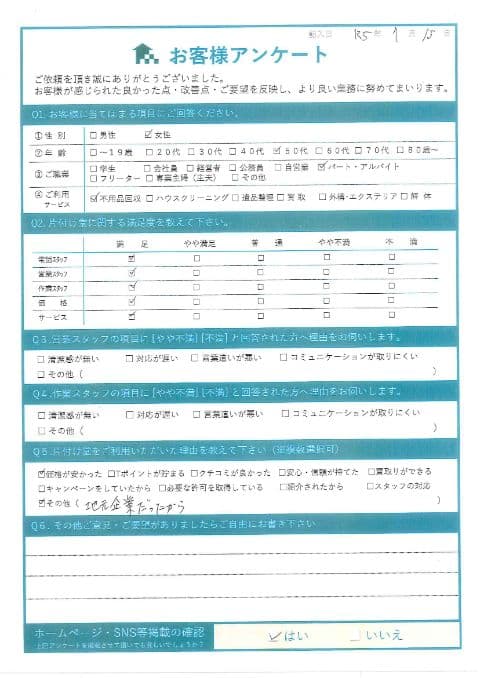 記入日 R5年 7月 15日
お客様アンケート
ご依頼を頂き誠にありがとうございました。
お客様が感じられた良かった点・改善点・ご要望を反映し、より良い業務に努めてまいります。
Q1. お客様に当てはまる項目にご回答ください。
①性 別 □男性 ☑女性
②年 齢 □～19歳 □20代 □30代 □40代 ☑50代 □60代 □70代 □80歳～
③ご職業 □学生 □会社員 □経営者 □公務員 □自営業 ☑パート・アルバイト
□フリーター □専業主婦（主夫） □その他
④ご利用サービス ☑不用品回収 □ハウスクリーニング □遺品整理 □買 取 □外構・エクステリア □解 体
Q2. 片付け堂に関する満足度を教えて下さい。
満 足 やや満足 普 通 やや不満 不 満
電話スタッフ ☑ □ □ □ □
営業スタッフ ☑ □ □ □ □
作業スタッフ ☑ □ □ □ □
価 格 ☑ □ □ □ □
サービス ☑ □ □ □ □
Q3. 営業スタッフの項目に[やや不満][不満]と回答された方へ理由をお伺いします。
□清潔感が無い □対応が遅い □言葉遣いが悪い □コミュニケーションが取りにくい
□その他（ ）
Q4. 作業スタッフの項目に[やや不満][不満]と回答された方へ理由をお伺いします。
□清潔感が無い □対応が遅い □言葉遣いが悪い □コミュニケーションが取りにくい
□その他（ ）
Q5. 片付け堂をご利用いただいた理由を教えて下さい（※複数選択可）
☑価格が安かった □Tポイントが貯まる □クチコミが良かった □安心・信頼が持てた □買取りができる
□キャンペーンをしていたから □必要な許可を取得している □紹介されたから □スタッフの対応
☑その他（ 地元企業だったから ）
Q6. その他ご意見・ご要望がありましたらご自由にお書き下さい
ホームページ・SNS等掲載の確認 ☑はい □いいえ
上記アンケートを掲載させて頂いても宜しいでしょうか？